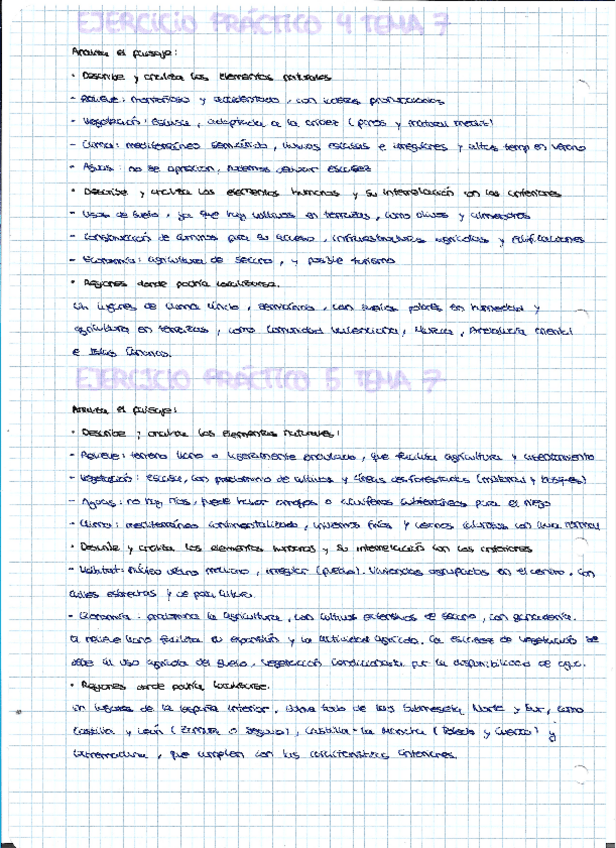 EJERCICIO PRÁCTICO 4 TEMA 7
Analiza el paisaje:
• Describe y analiza los elementos naturales
- Relieve: montañoso y accidentado, con laderas pronunciadas
- Vegetación: escasa, adaptada a la aridez (pinos y matorral medit)
- Clima: mediterráneo semiárido, lluvias escasas e irregulares y altas temp en verano
- Aguas: no se aprecian, podemos escasez
• Describe y analiza los elementos humanos y su interrelación con los anteriores
- Usos de suelo, ya que hay cultivos en terrazas, como olivos y almendros
- Construcción de caminos para su acceso, infraestructuras agrícolas y edificaciones
- Economía: agricultura de secano, y posible turismo
• Regiones donde podría localizarse.
En lugares de clima árido, semiárido, con suelos pobres en humedad y
agricultura en terrazas, como Comunidad Valenciana, Murcia, Andalucía oriental
e Islas Canarias.
EJERCICIO PRÁCTICO 5 TEMA 7
Analiza el paisaje:
• Describe y analiza los elementos naturales:
- Relieve: terreno llano o ligeramente ondulado, que facilita agricultura y asentamiento
- Vegetación: escasa, con predominio de cultivos y áreas desforestadas (matorral y bosques)
- Aguas: no hay ríos, puede haber arroyos o acuíferos para el riego
- Clima: mediterráneo continentalizado, inviernos fríos y veranos calurosos con lluvia normal
• Describe y analiza los elementos humanos y su interrelación con los anteriores
- Hábitat: núcleo urbano mediano, irregular (pueblo). Viviendas agrupadas en el centro. Con
calles estrechas y de poca altura.
- Economía: predomina la agricultura, con cultivos extensivos de secano, con ganadería.
El relieve llano facilita su expansión y la actividad agrícola. La escasez de vegetación se
debe al uso agrícola del suelo, vegetación condicionada por la disponibilidad de agua.
• Regiones donde podría localizarse.
En lugares de la España interior, sobre todo de las Submeseta Norte y Sur, como
Castilla y León (Zamora o Segovia), Castilla-La Mancha (Toledo y Cuenca) y
Extremadura, que cumplen con las características anteriores.